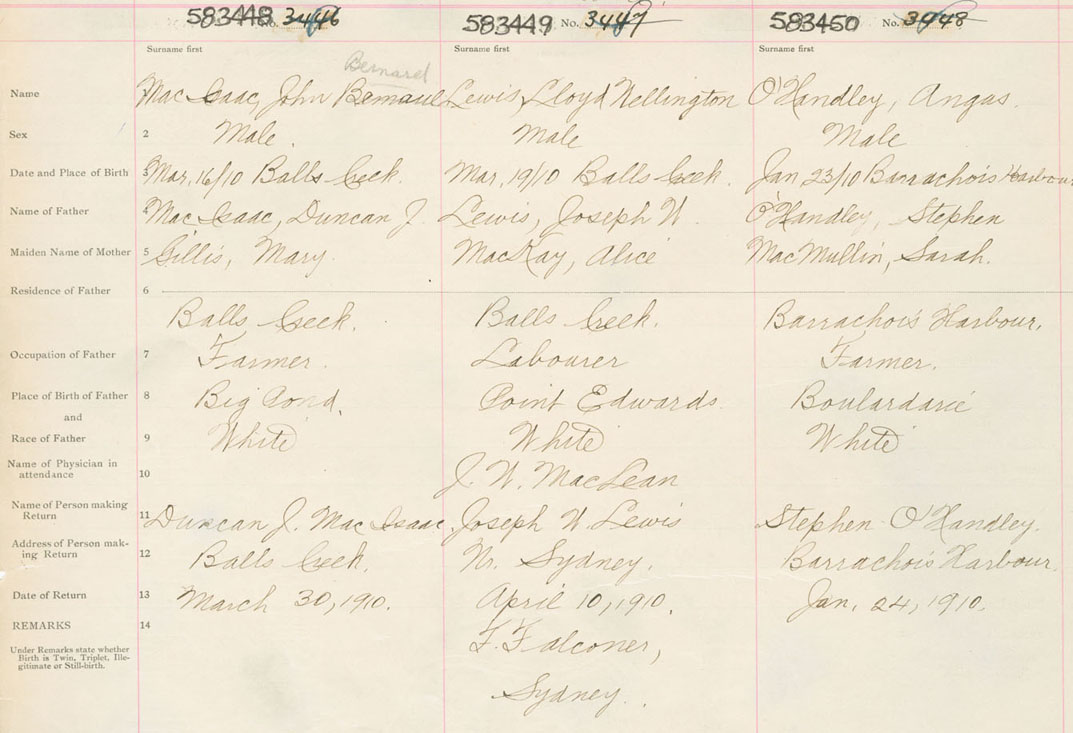 583448 No. 3446 583449 No. 3447 583450 No. 3448
Surname first Surname first Surname first
Bernard
Name Mac Isaac, John Bernard Lewis, Lloyd Wellington O'Handley, Angus.
Sex 2 Male. Male. Male
Date and Place of Birth 3 Mar, 16/10 Balls Creek. Mar, 19/10 Balls Creek. Jan 23/10 Barrachois Harbour
Name of Father 4 Mac Isaac, Duncan J. Lewis, Joseph W. O'Handley, Stephen
Maiden Name of Mother 5 Gillis, Mary. MacKay, Alice MacMullin, Sarah.
Residence of Father 6
Balls Creek. Balls Creek. Barrachois Harbour.
Occupation of Father 7 Farmer. Labourer Farmer.
Place of Birth of Father 8 Big Pond, Point Edwards. Boulardarie
and
Race of Father 9 White White White
Name of Physician in
attendance 10 J. W. MacLean
Name of Person making
Return 11 Duncan J. Mac Isaac, Joseph W Lewis Stephen O'Handley.
Address of Person mak-
ing Return 12 Balls Creek. Nr. Sydney. Barrachois Harbour.
Date of Return 13 March 30, 1910. April 10, 1910. Jan. 24, 1910.
REMARKS 14
F. Falconer,
Under Remarks state whether
Birth is Twin, Triplet, Ille-
gitimate or Still-birth.
Sydney.